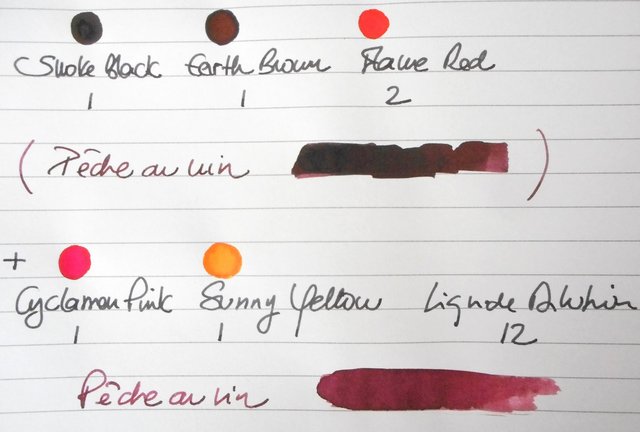 Smoke Black Earth Brown Flame Red
1 1 2
( Pêche au vin )
+
Cyclamen Pink Sunny Yellow Liquide Dilution
1 1 12
Pêche au vin